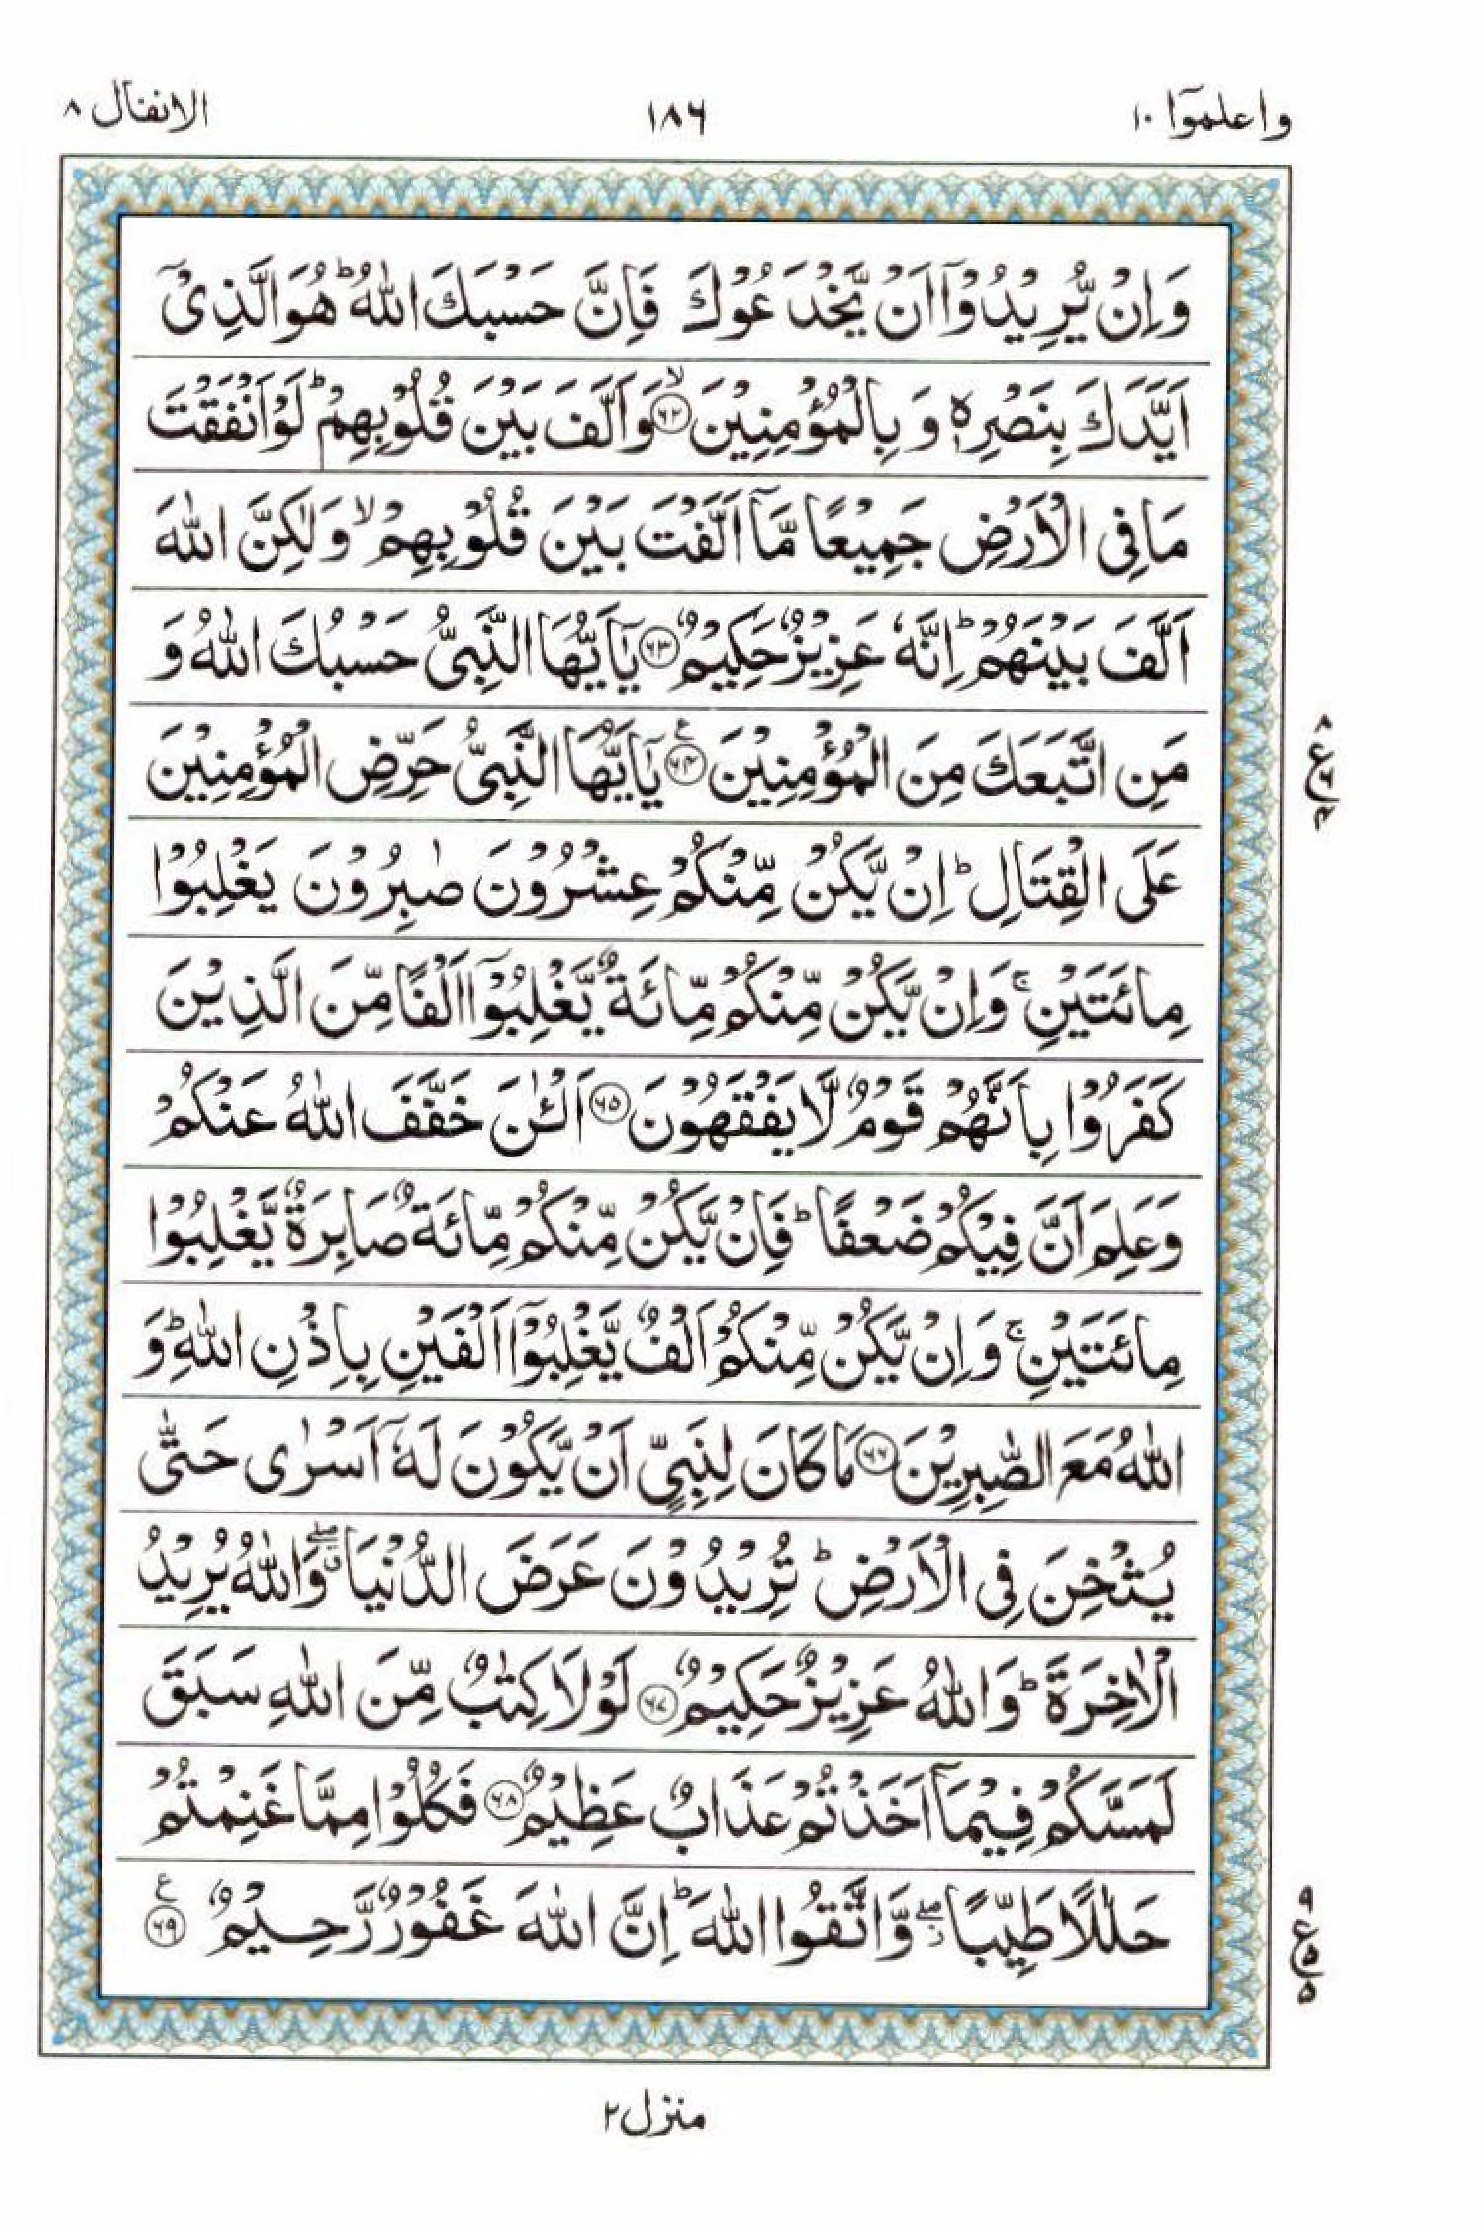 واعلموٓا ١٠
١٨٦
الانفال ٨
وَاِنۡ يُّرِيۡدُوۡۤا اَنۡ يَّخۡدَعُوۡكَ فَاِنَّ حَسۡبَكَ اللّٰهُ‌ؕ هُوَ الَّذِىۡۤ
اَيَّدَكَ بِنَصۡرِهٖ وَ بِالۡمُؤۡمِنِيۡنَۙ‏ ﴿۶۲﴾ وَاَلَّفَ بَيۡنَ قُلُوۡبِهِمۡ‌ؕ لَوۡ اَنۡفَقۡتَ
مَا فِى الۡاَرۡضِ جَمِيۡعًا مَّاۤ اَلَّفۡتَ بَيۡنَ قُلُوۡبِهِمۡۙ وَلٰكِنَّ اللّٰهَ
اَلَّفَ بَيۡنَهُمۡ‌ؕ اِنَّهٗ عَزِيۡزٌ حَكِيۡمٌ‏ ﴿۶۳﴾ يٰۤاَيُّهَا النَّبِىُّ حَسۡبُكَ اللّٰهُ وَ
مَنِ اتَّبَعَكَ مِنَ الۡمُؤۡمِنِيۡنَ‏ ﴿۶۴﴾ ع يٰۤاَيُّهَا النَّبِىُّ حَرِّضِ الۡمُؤۡمِنِيۡنَ
٨ ع ٦ ٤
عَلَى الۡقِتَالِ‌ؕ اِنۡ يَّكُنۡ مِّنۡكُمۡ عِشۡرُوۡنَ صٰبِرُوۡنَ يَغۡلِبُوۡا
مِائَتَيۡنِ‌ۚ وَاِنۡ يَّكُنۡ مِّنۡكُمۡ مِّائَةٌ يَّغۡلِبُوۡۤا اَلۡفًا مِّنَ الَّذِيۡنَ
كَفَرُوۡا بِاَنَّهُمۡ قَوۡمٌ لَّا يَفۡقَهُوۡنَ‏ ﴿۶۵﴾ اَلۡـٰٔنَ خَفَّفَ اللّٰهُ عَنۡكُمۡ
وَعَلِمَ اَنَّ فِيۡكُمۡ ضَعۡفًا‌ؕ فَاِنۡ يَّكُنۡ مِّنۡكُمۡ مِّائَةٌ صَابِرَةٌ يَّغۡلِبُوۡا
مِائَتَيۡنِ‌ۚ وَاِنۡ يَّكُنۡ مِّنۡكُمۡ اَلۡفٌ يَّغۡلِبُوۡۤا اَلۡفَيۡنِ بِاِذۡنِ اللّٰهِؕ وَ
اللّٰهُ مَعَ الصّٰبِرِيۡنَ‏ ﴿۶۶﴾ مَا كَانَ لِنَبِىٍّ اَنۡ يَّكُوۡنَ لَهٗۤ اَسۡرٰى حَتّٰى
يُثۡخِنَ فِى الۡاَرۡضِ‌ؕ تُرِيۡدُوۡنَ عَرَضَ الدُّنۡيَاۖ وَاللّٰهُ يُرِيۡدُ
الۡاٰخِرَةَ‌ؕ وَاللّٰهُ عَزِيۡزٌ حَكِيۡمٌ‏ ﴿۶۷﴾ لَوۡلَا كِتٰبٌ مِّنَ اللّٰهِ سَبَقَ
لَمَسَّكُمۡ فِيۡمَاۤ اَخَذۡتُمۡ عَذَابٌ عَظِيۡمٌ‏ ﴿۶۸﴾ فَكُلُوۡا مِمَّا غَنِمۡتُمۡ
حَلٰلًا طَيِّبًاۖ وَّاتَّقُوا اللّٰهَ‌ؕ اِنَّ اللّٰهَ غَفُوۡرٌ رَّحِيۡمٌ‏ ﴿۶۹﴾ ع
٩ ع ٥ ٥
منزل ٢